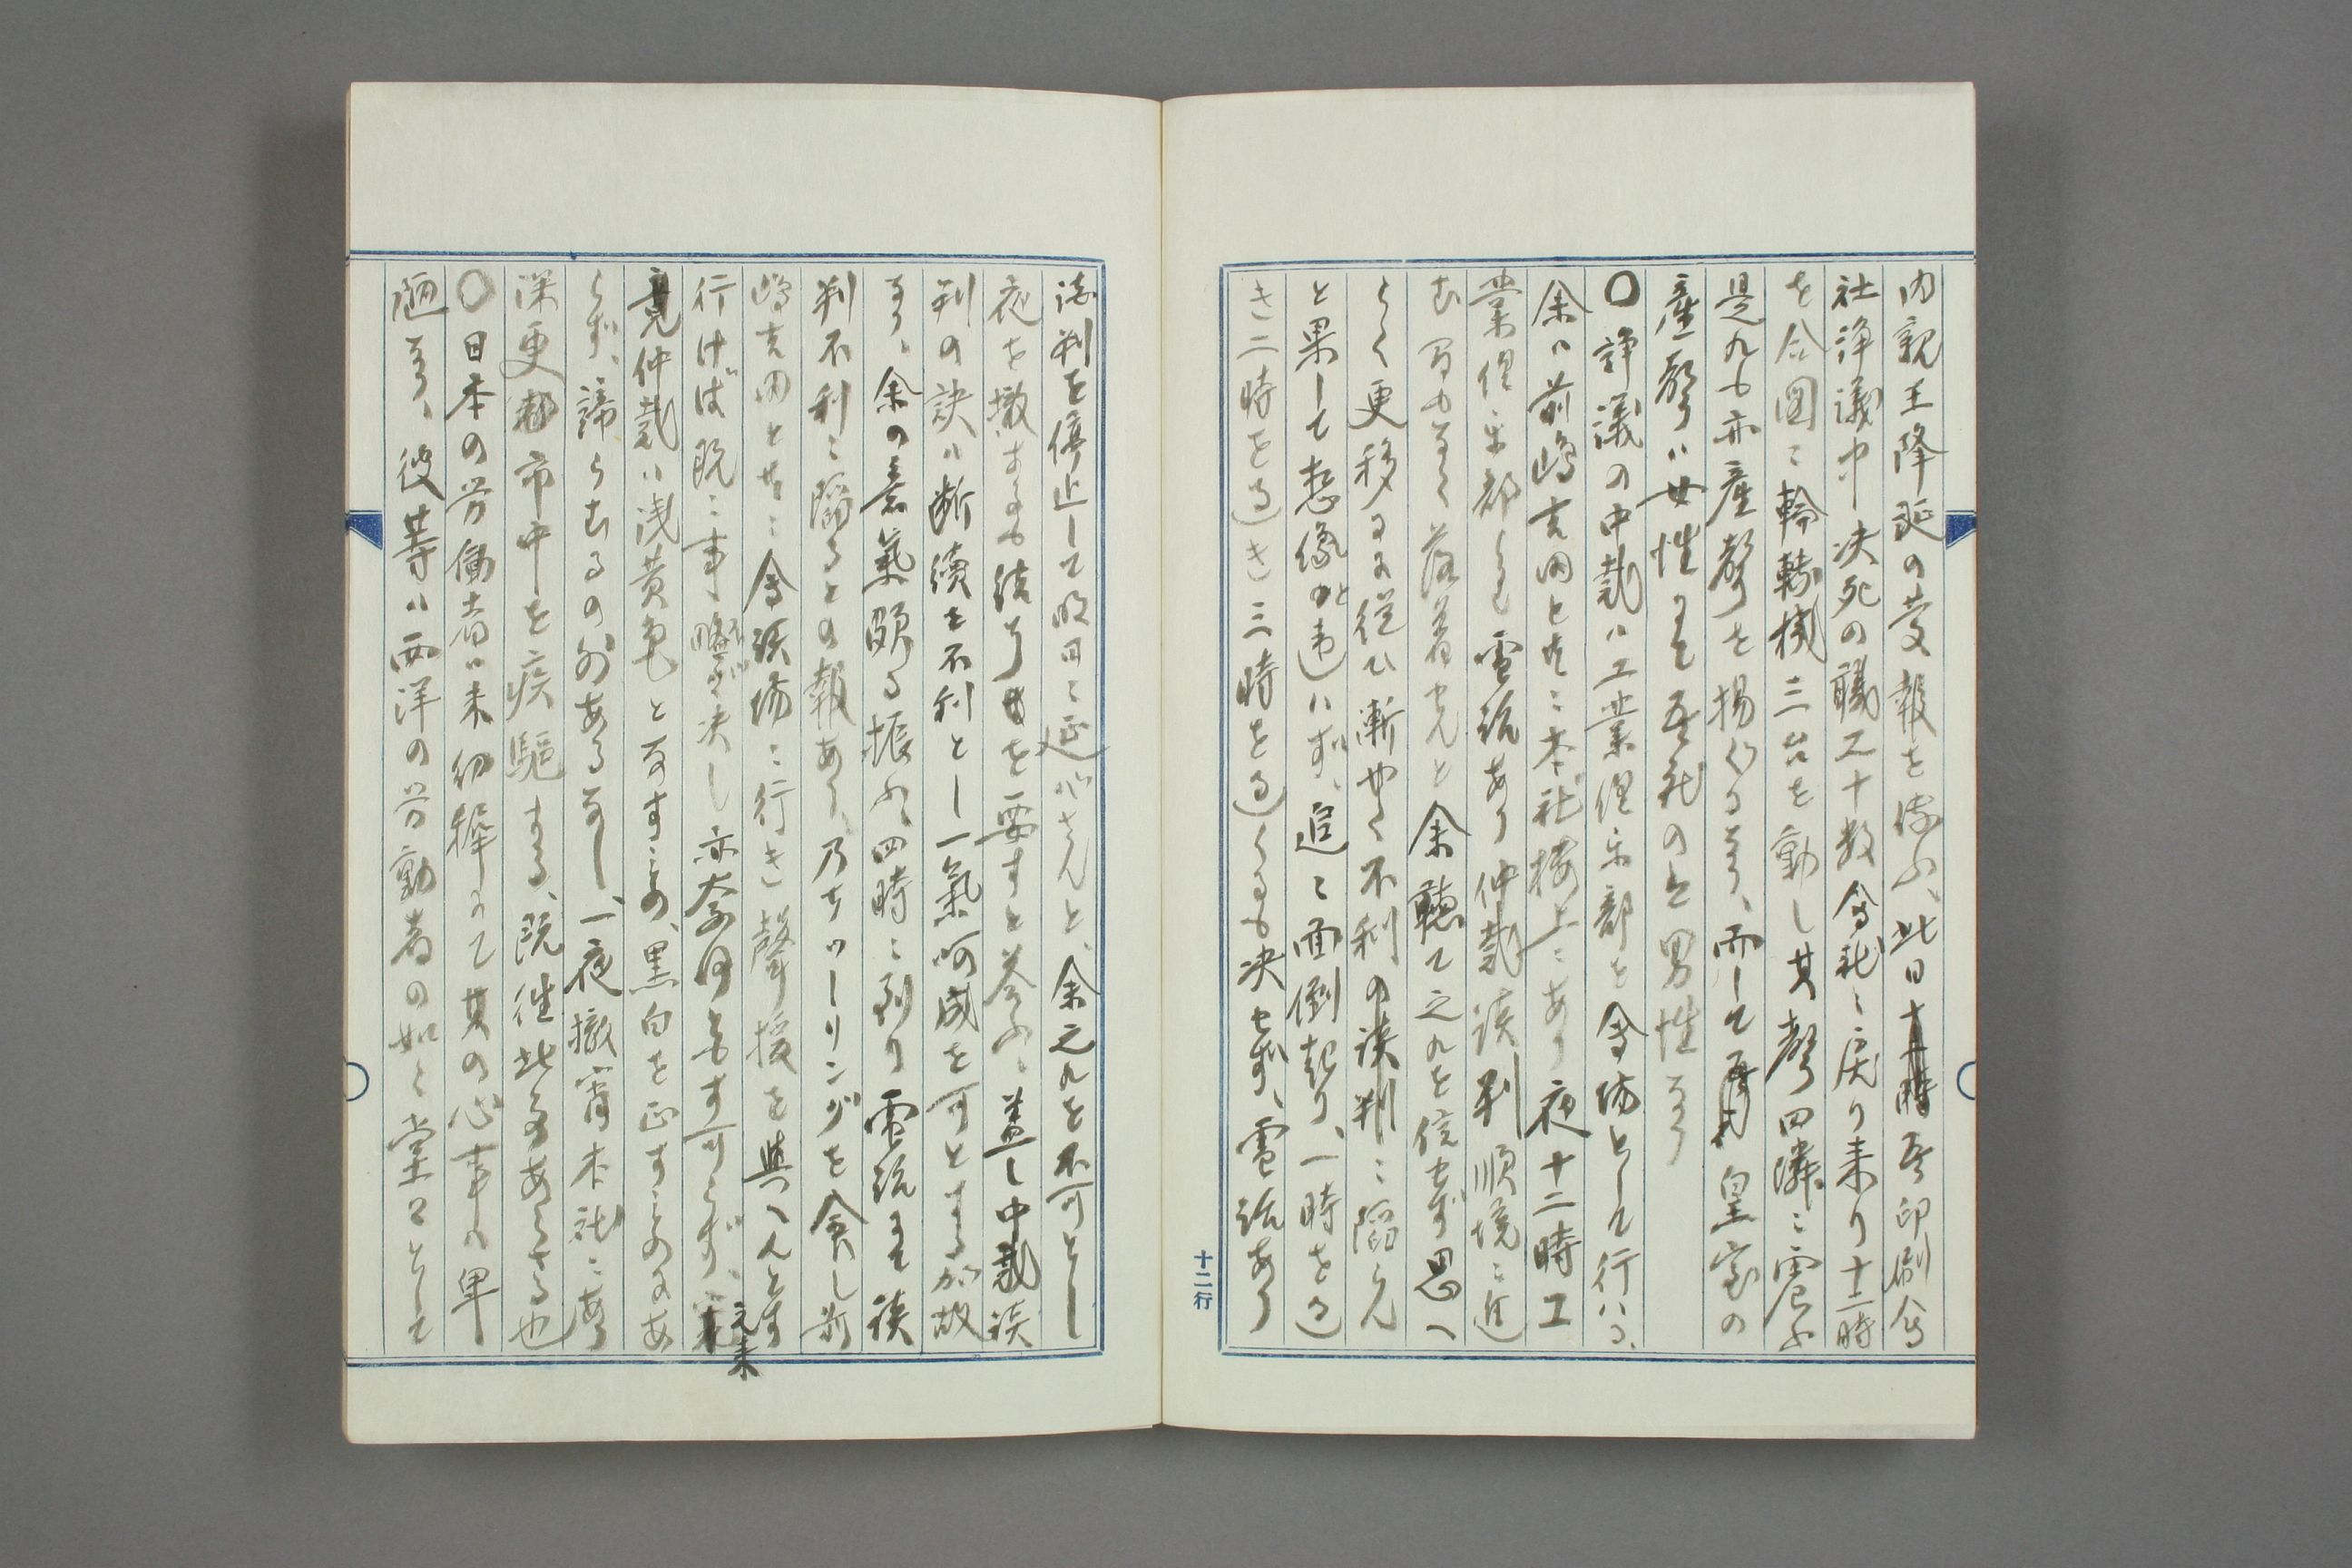 内親王降誕の号報を傳ふ、此日吾印刷会
社諍議中決死の職工十数会社に戻り来り十二時
を合圖に輪轉機三台を動し其聲四隣に震ふ
是れも亦産聲を揚くるなり、而して皇室の
産聲ハ女性にて吾社のは男性なり
〇諍議の中裁ハ工業倶楽部を会場として行はる、
余ハ前嶋吉田と共に本社楼上にあり夜十二時工
業倶楽部より電話あり仲裁談判順境に近
む間もなく落着せんと余聴て之れを信せず思へ
らく更移るに従ひ漸やく不利の談判に陥らん
と果して想像と違はず、追て面倒起り、一時を過
き二時を過き三時を過くるも決せず、電話あり
談判を停止して明日に延ばさんと、余之れを不可とし
夜を撤するも結了を要すと答ふ、蓋し中裁談
判の訣ハ断続を不利とし一氣呵成を可とするが故
なり、余の意氣頗る振ふ、四時に到り電話にて談
判不利に陥るとの報あり、乃ち車を命し前
嶋吉田と共に会談場に行き聲援を與へんとす
行けば既に事略ぼ決し亦奈何ともす可らず、元来
仲裁ハ浅黄色となすもの、黒白を正すものにあ
らず、諦らむるの外あるなし、一夜撤宵本社にあり
深更市中を疾駆する、既往此事あらざる也
〇日本の労働者ハ未幼稚にて其の心事ハ卑
陋なり、彼等ハ西洋の労動者の如く堂々として
十二行